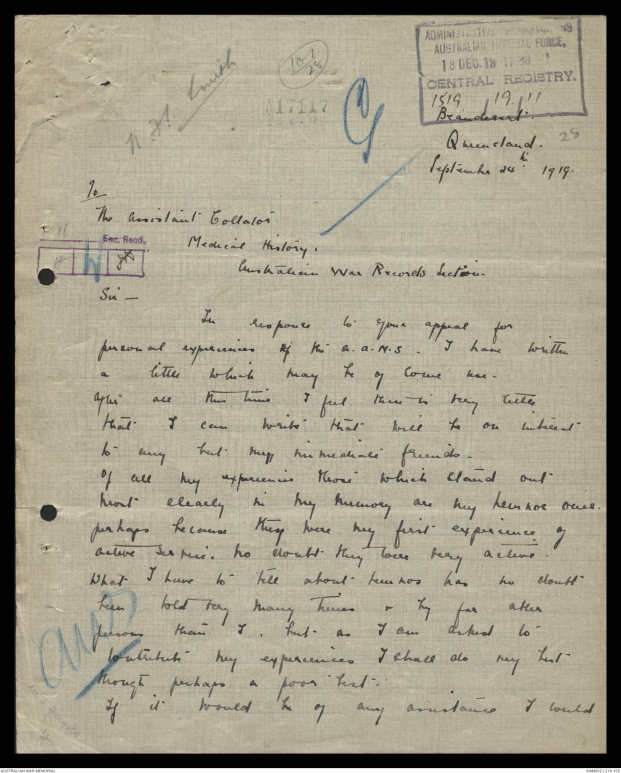 ADMINISTRATIVE HEADQUARTERS
AUSTRALIAN IMPERIAL FORCE,
18 DEC. 19 11 30
CENTRAL REGISTRY.
1519 19.11
N.F. Smith
101
28
417117
G
28
Beaudesert.
Queensland.
September 24th 1919.
To
The Assistant Collator
16
Enc. Recd.
Medical History.
Australian War Records Section.
Sir —
In response to your appeal for
personal experiences of the A.A.N.S. I have written
a little which may be of some use.
After all this time I feel there is very little
that I can write that will be on interest
to any but my immediate friends.
Of all my experiences those which stand out
most clearly in my memory are my Lemnos ones.
perhaps because they were my first experience of
active service. No doubt they were very active.
What I have to tell about Lemnos has no doubt
been told very many times & by far abler
persons than I. but as I am asked to
contribute my experiences I shall do my best
though perhaps a poor best.
If it would be of any assistance I would
AWRS
AUSTRALIAN WAR MEMORIAL